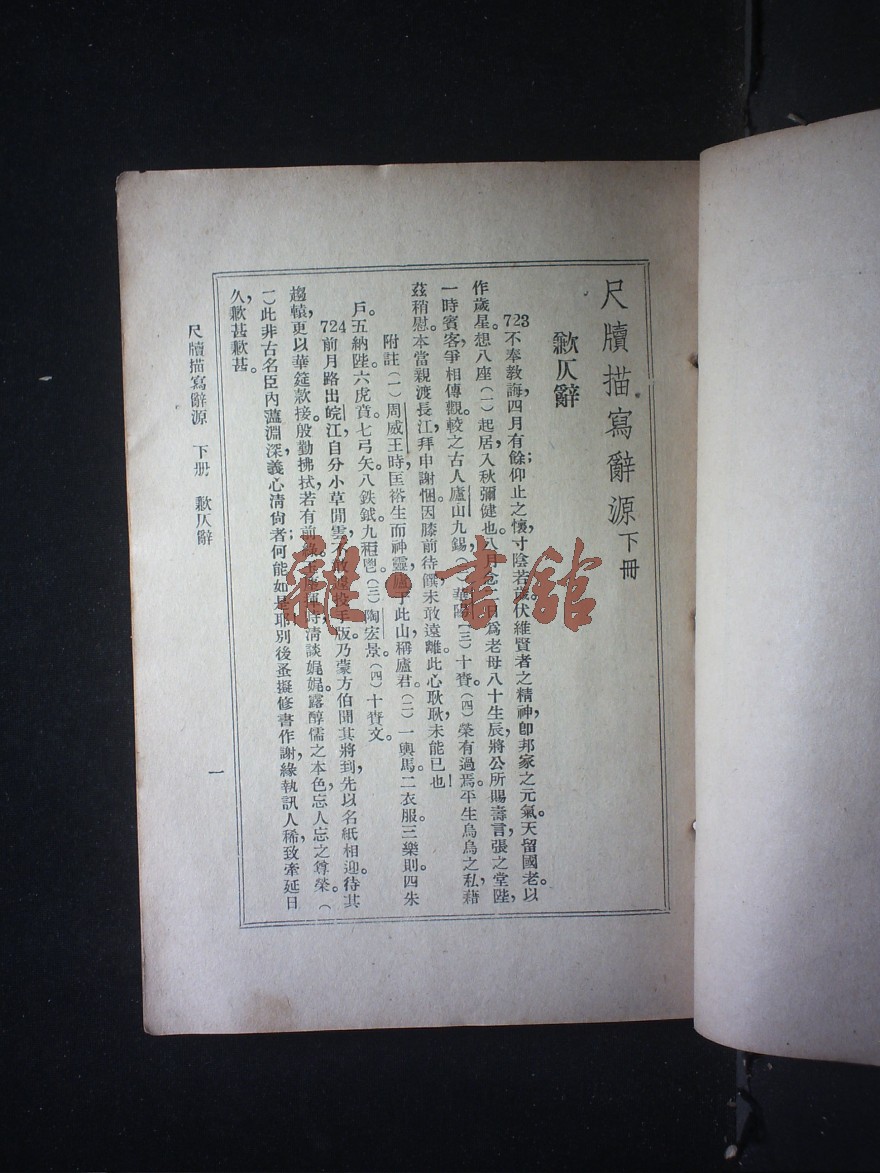 尺牘描寫辭源下冊
歉仄辭
723不奉教誨，四月有餘；仰止之懷，寸陰若歲。伏維賢者之精神，卽邦家之元氣。天留國老，以
作歲星。想八座（一）起居，入秋彌健也。八月念二日，爲老母八十生辰，將公所賜壽言，張之堂陛，
一時賓客，爭相傳觀。較之古人廬山九錫，（二）華陽（三）十賚，（四）榮有過焉。平生烏鳥之私，藉
茲稍慰。本當親渡長江，拜申謝悃。因膝前待饌，未敢遠離，此心耿耿，未能已也！
附註（一）周威王時匡裕生而神靈廬于此山，稱廬君。（二）一輿馬二衣服三樂則四朱
戶。五納陛。六虎賁七弓矢。八鈇鉞九秬鬯。（三）陶宏景。（四）十賚文。
724前月路出皖江，自分小草閒雲，不敢遽投手版。乃蒙方伯聞其將到，先以名紙相迎。待其
趨轅，更以華筵款接。殷勤拂拭，若有前緣。清談娓娓，露醇儒之本色，忘人忘之尊榮。（
一）此非古名臣內蘊淵深，義心清尙者；何能如是耶？別後蚤擬修書作謝，緣執訊人稀，致牽延日
久，歉甚歉甚。
尺牘描寫辭源　下册　歉仄辭
一
雜·書館